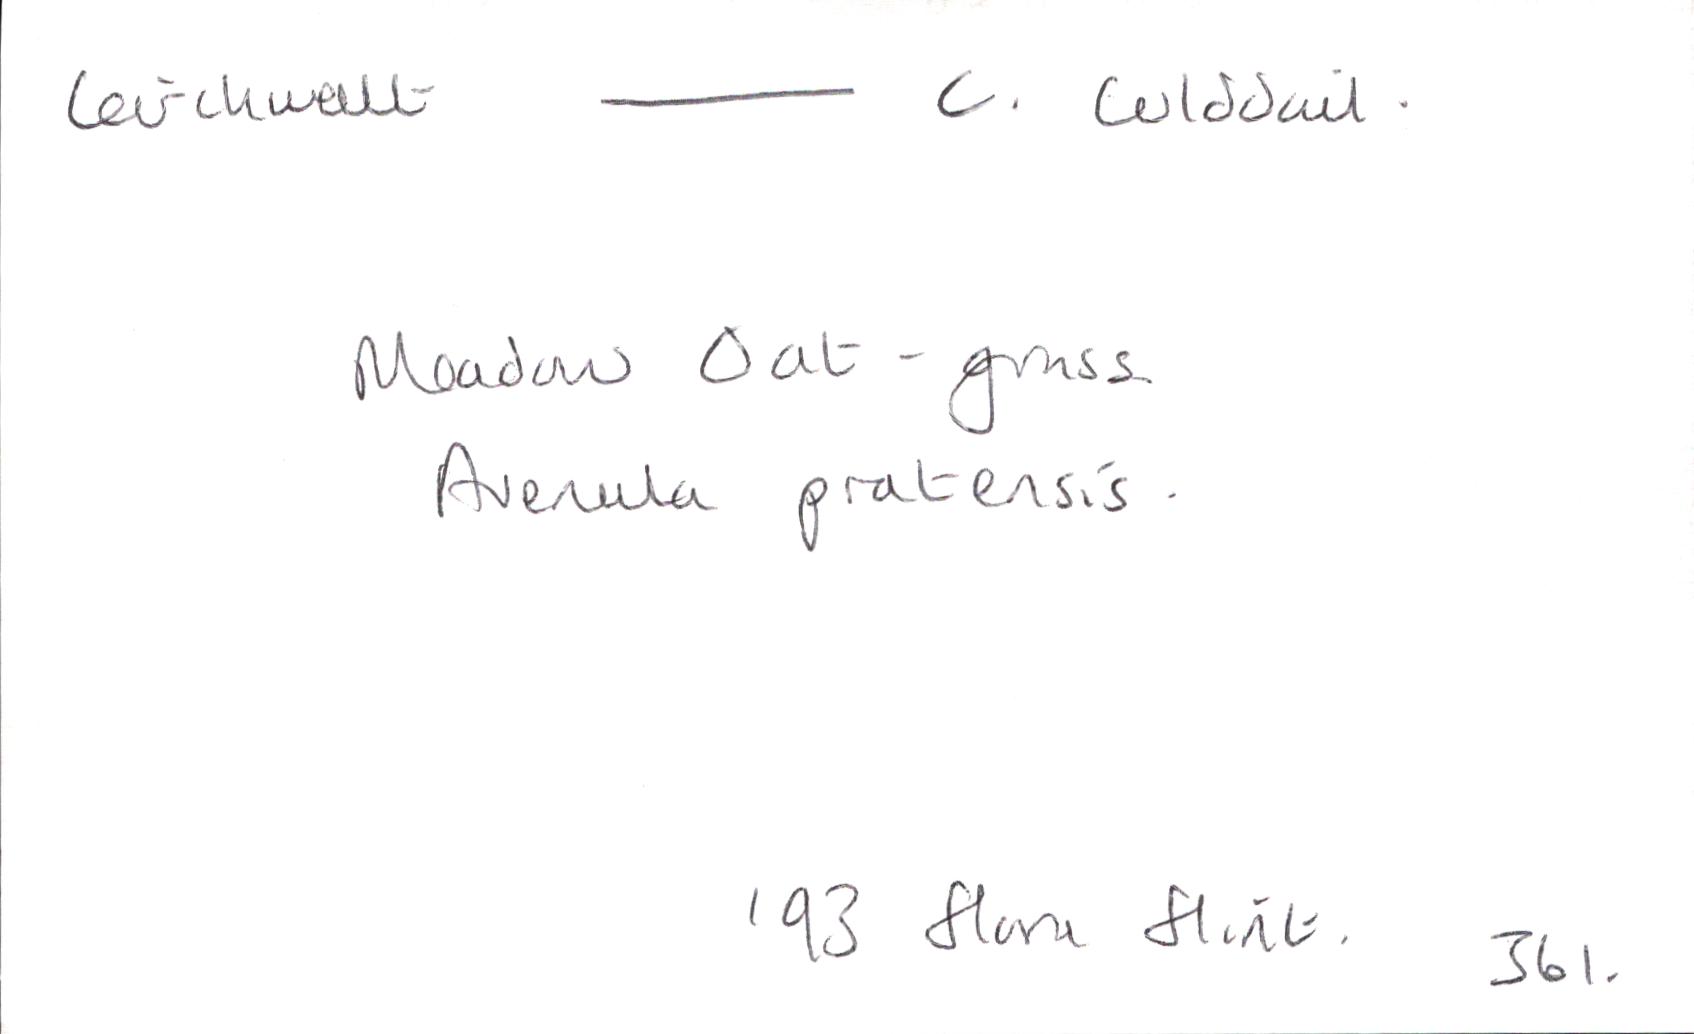 Ceirchwellt — C. Culddail.
Meadow Oat-grass
Avenula pratensis.
'93 Flora Flint. 361.